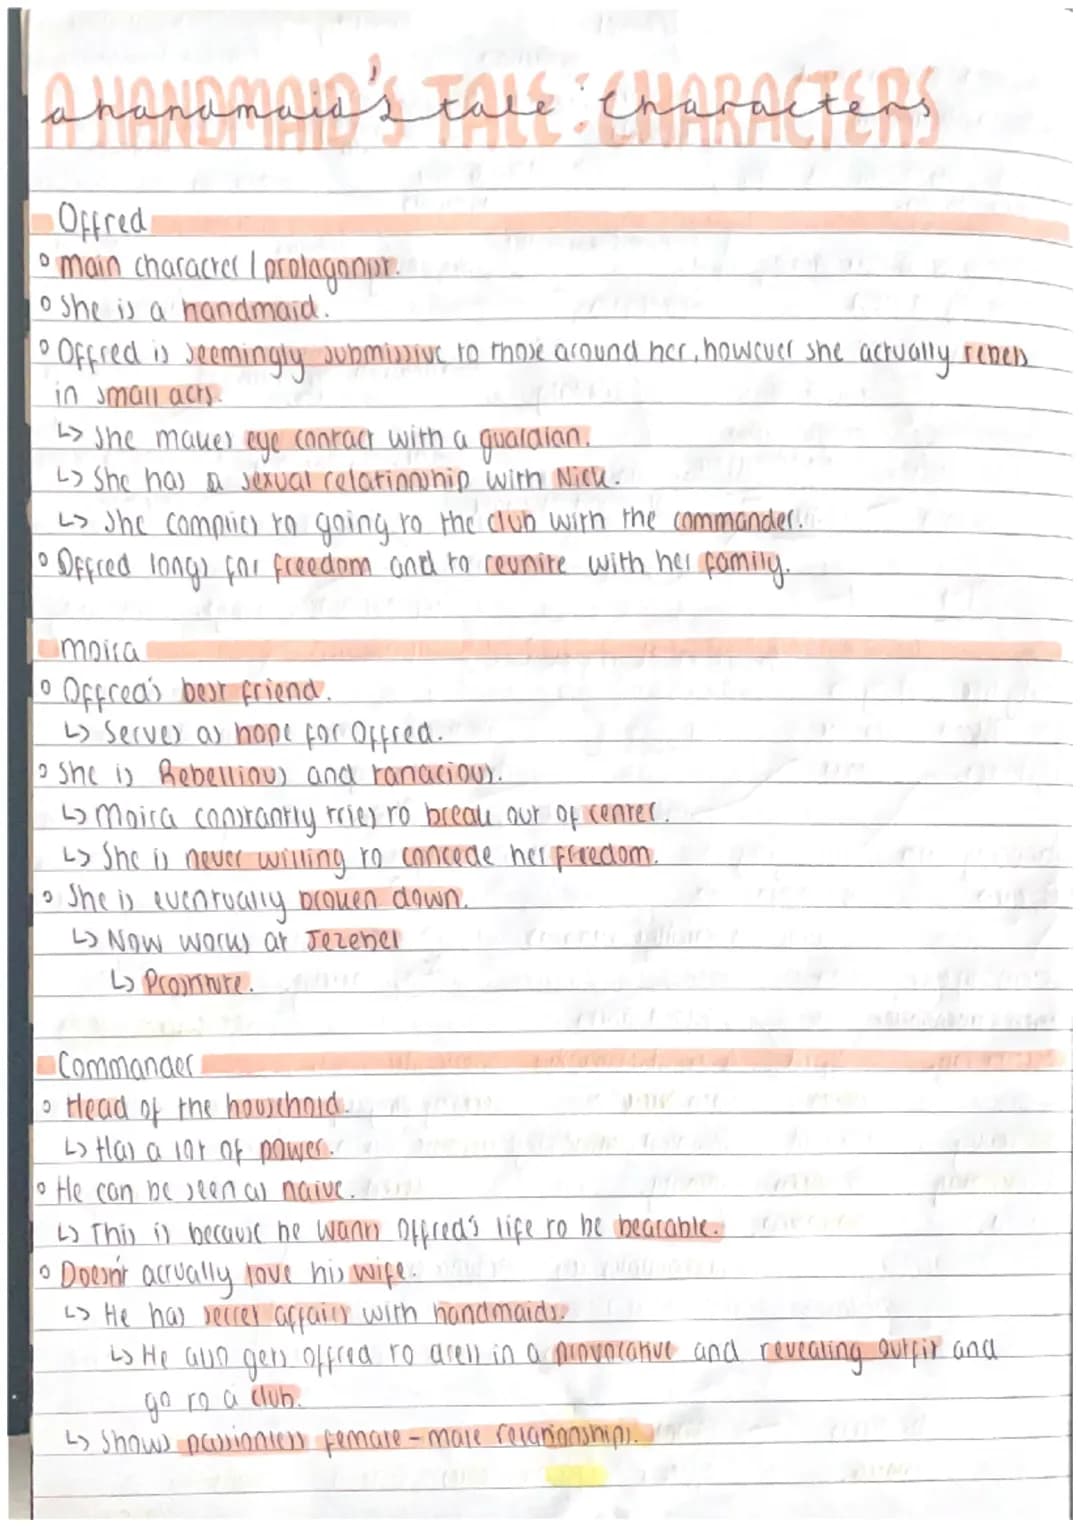 A HANDMAID'S TALE: CHARACTERS
a handmaid's tale: characters
Offred
° main character / protagonist.
° She is a handmaid.
° Offred is seemingly submissive to those around her, however she actually rebels
in small acts.
↳ She makes eye contact with a guardian.
↳ She has a sexual relationship with Nick.
↳ She complies to going to the club with the commander.
° Offred longs for freedom and to reunite with her family.
moira
° Offred's best friend.
↳ Serves as hope for Offred.
° She is Rebellious and tanacious.
↳ Moira constantly tries to break out of center.
↳ She is never willing to concede her freedom.
° She is eventually broken down.
↳ Now works at Jezebel
↳ Prostitute.
Commander
° Head of the household.
↳ Has a lot of power.
° He can be seen as naive.
↳ This is because he wants Offred's life to be bearable.
° Doesn't actually love his wife.
↳ He has secret affairs with handmaids.
↳ He also gets offred to dress in a provocative and revealing outfit and
go to a club.
↳ Shows passionless female-male relationships.